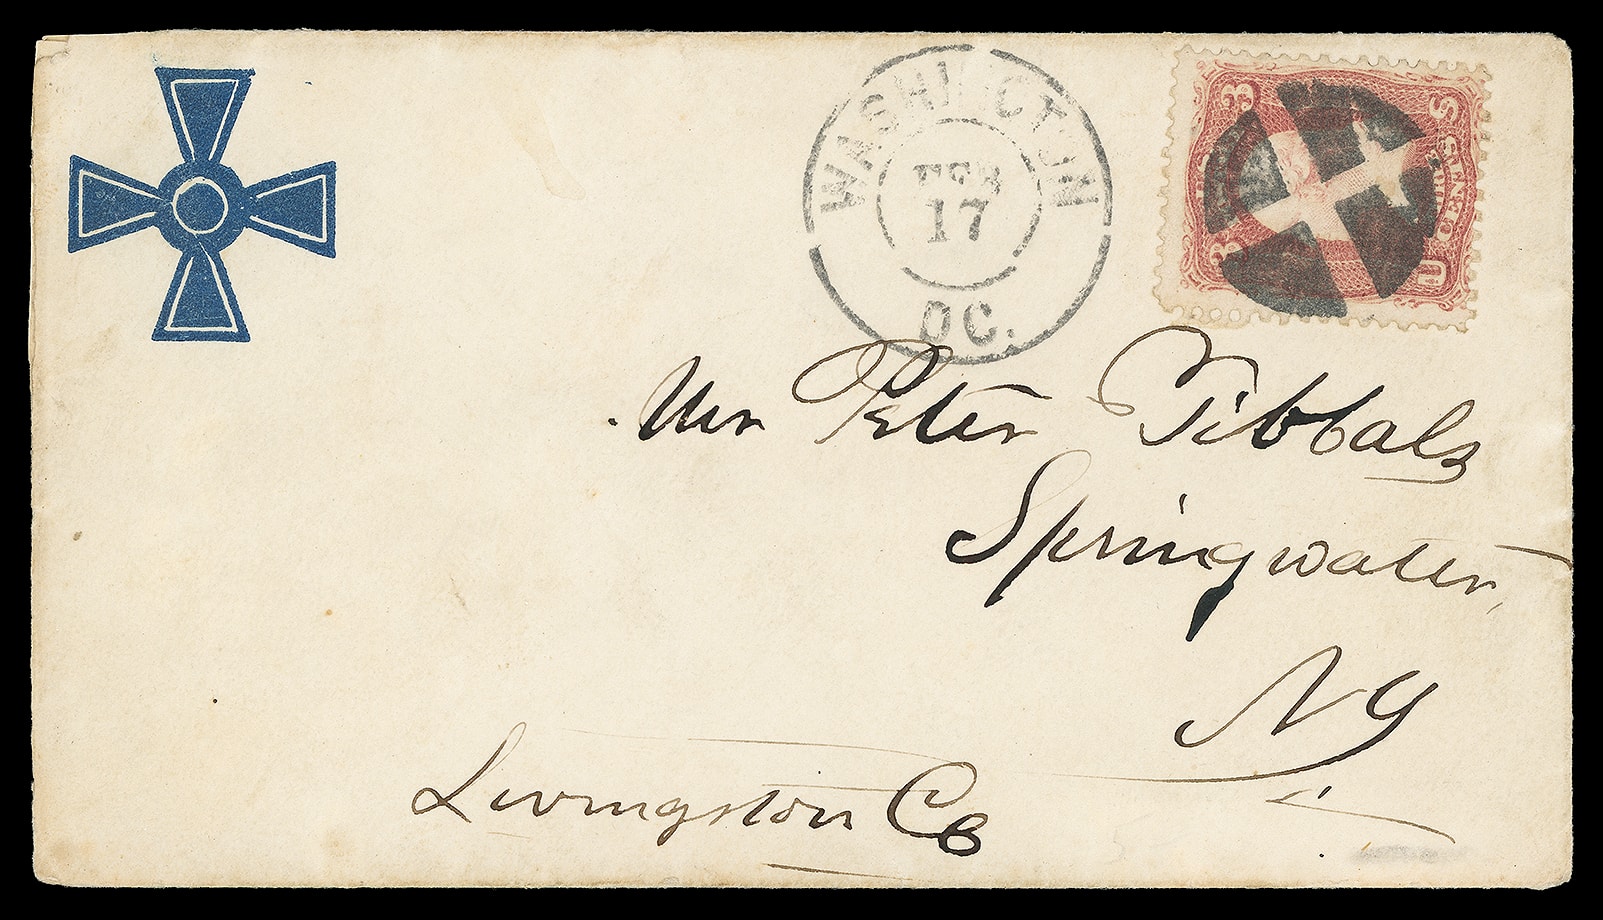 WASHINGTON
FEB
17
DC.
3 3
U S
CENTS
Mr Peter Tibbals
Springwater,
NY
Livingston Co